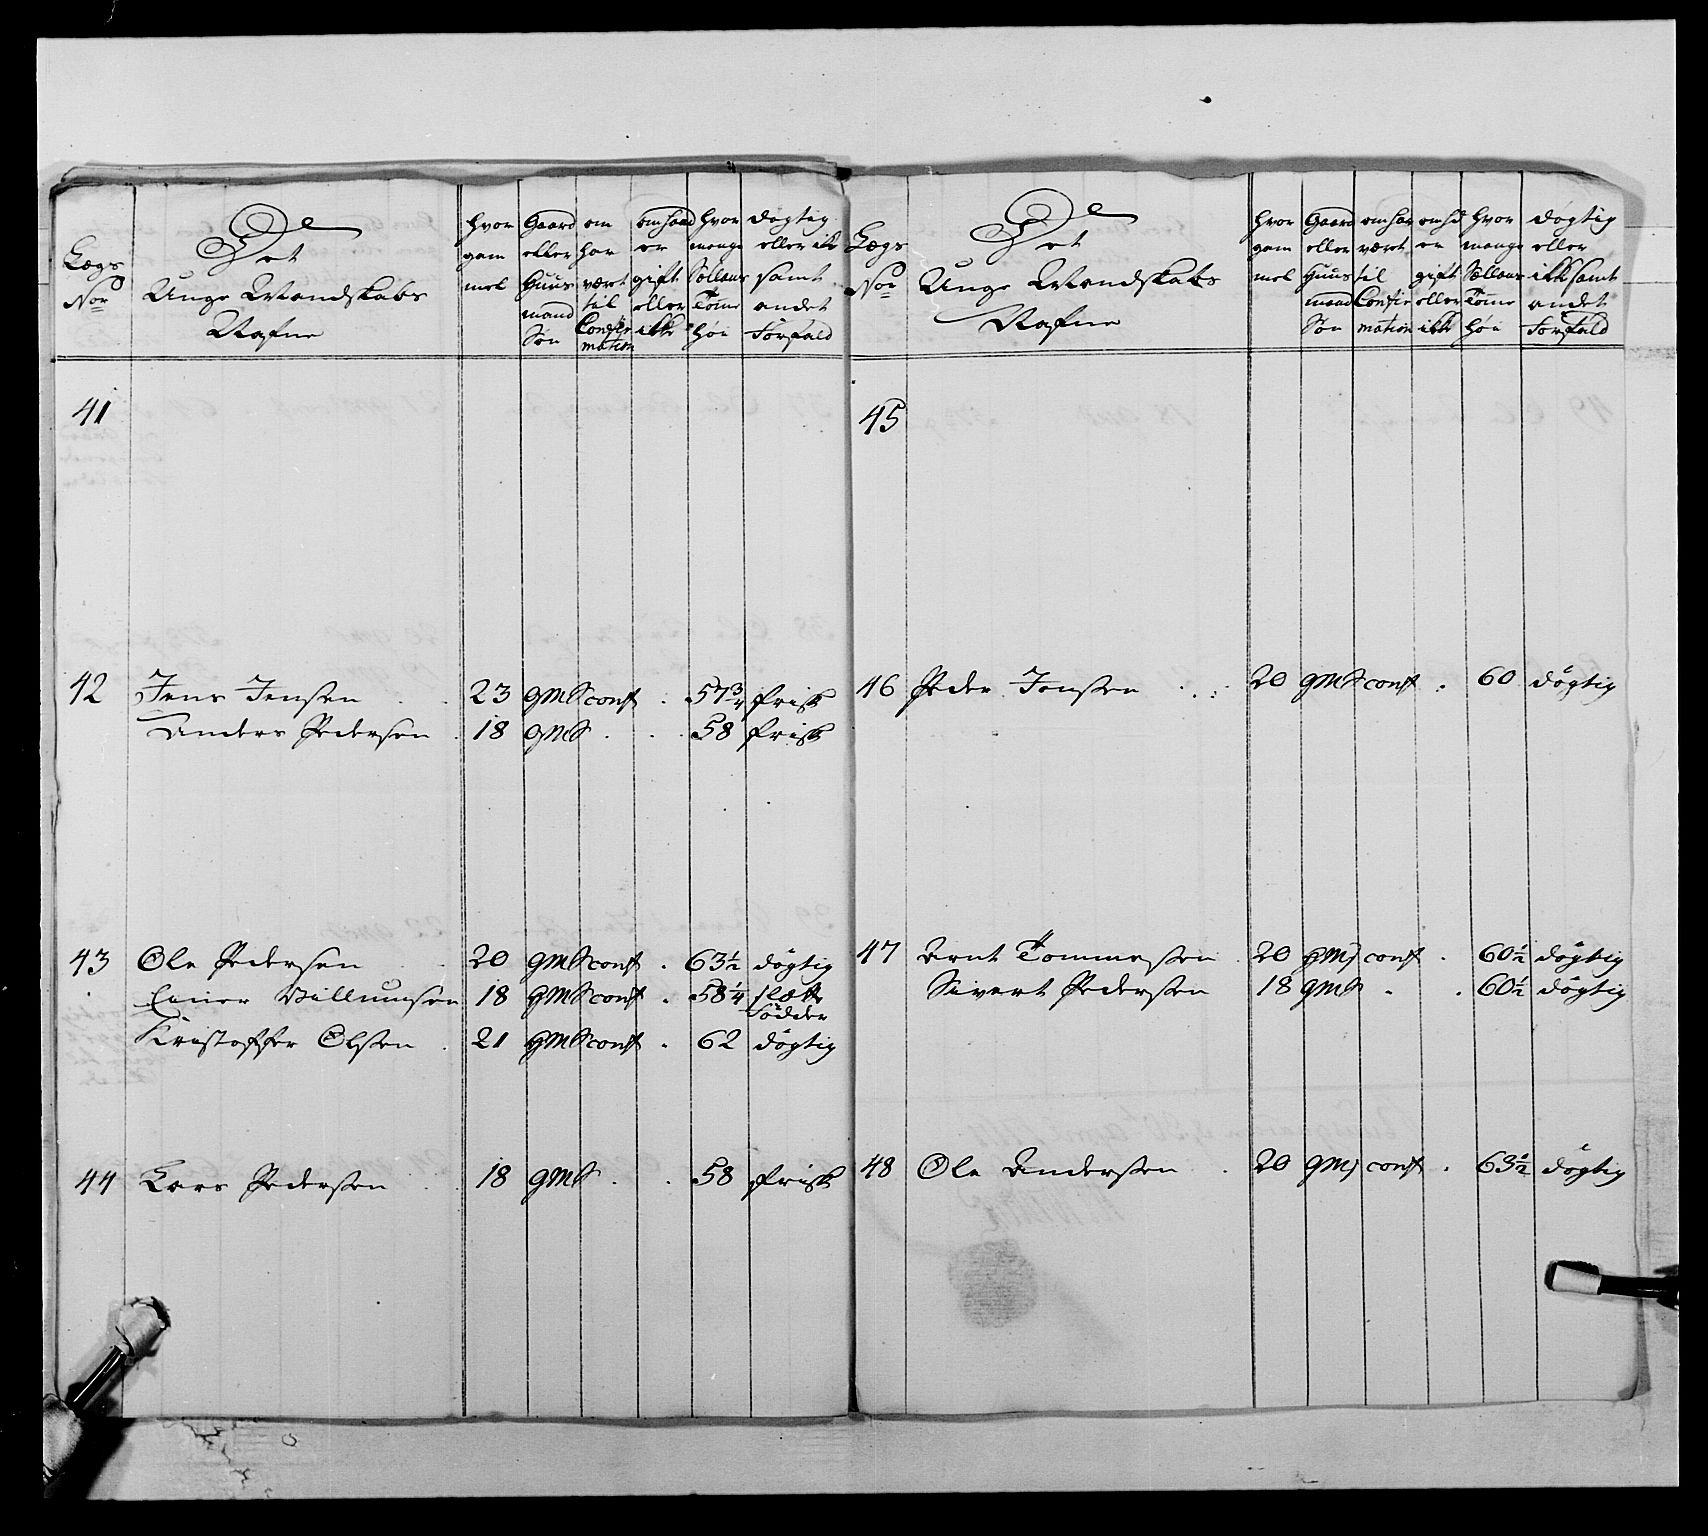 Lægs
No
Det
Unge Mandskabs
Nafne
hvor
gam
mel
Gaard
eller
Huus
mand
Søn
om
har
været
til
Confir
mation
om hand
er
gift
eller
ikke
hvor
mange
Sællans
Tomme
høi
døgtig
eller ikke
samt
andet
Forfald
41
42 Jens Jensen . . 23 GMS conf . 57 3/4 frisk
Anders Pedersen . 18 GMS . . . 58 frisk
43 Ole Pedersen . . 20 GMS conf . 63 1/2 døgtig
Einer Villumsen 18 GMS conf . 58 1/4 slætte
fødder
Kristoffer Olsen . 21 GMS conf . 62 døgtig
44 Lars Pedersen . . 18 GMS . . 58 frisk
Lægs
No
Det
Unge Mandskabs
Nafne
hvor
gam
mel
Gaard
eller
Huus
mand
Søn
om har
været
til
Confir
mation
om hd
er
gift
eller
ikke
hvor
mange
Sællans
Tomme
høi
døgtig
eller
ikke samt
andet
Forfald
45
46 Peder Jonsen . . 20 GMS conf . 60 døgtig
47 Arnt Tommesen . 20 GMS conf . 60 1/2 døgtig
Sivert Pedersen 18 GMS . . 60 1/2 døgtig
48 Ole Andersen . 20 GMS conf . 63 1/2 døgtig